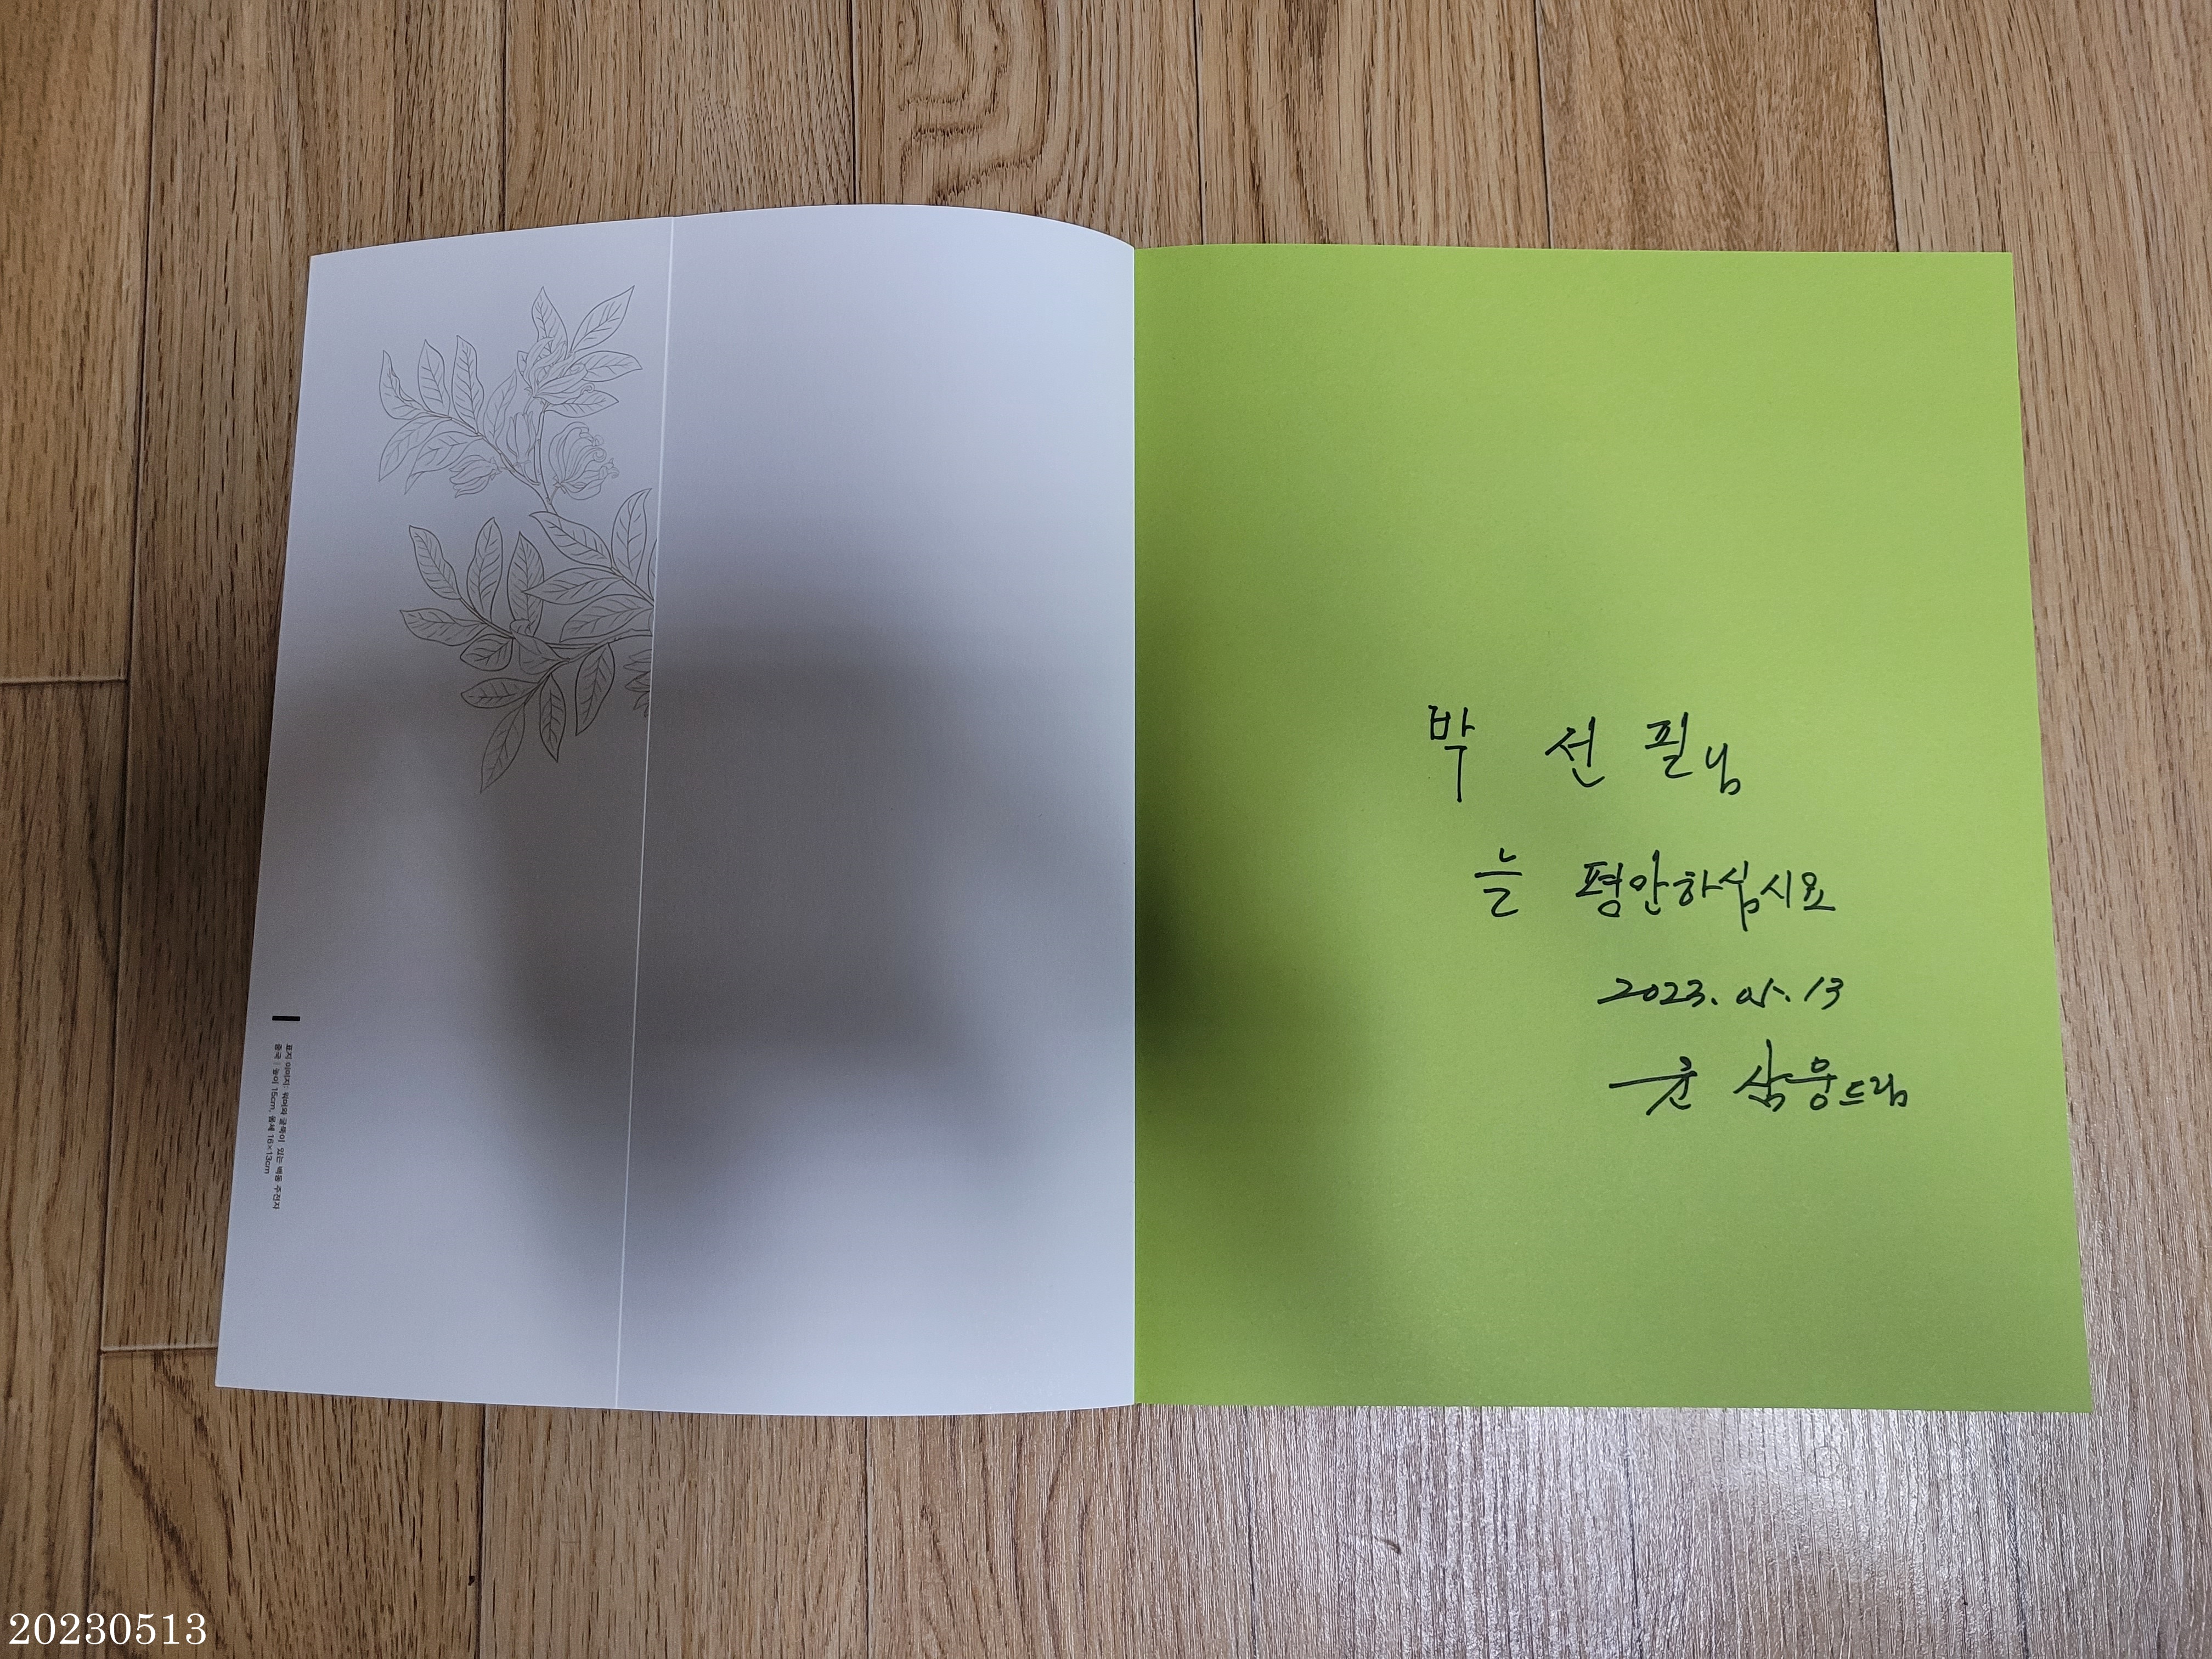 표지 이미지: 워머와 굴뚝이 있는 백동 주전자
중국 | 높이 15cm, 몸체 16×13cm
박 선 필님
늘 평안하십시요
2023. 05. 13
윤 삼웅드림
20230513